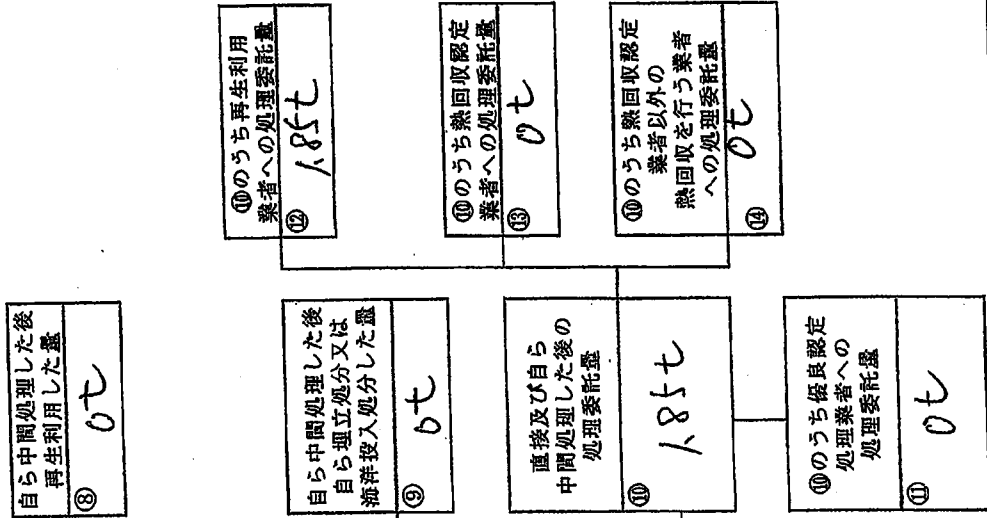 自ら中間処理した後
再生利用した量
⑧
0t
自ら中間処理した後
自ら埋立処分又は
海洋投入処分した量
⑨
0t
直接及び自ら
中間処理した後の
処理委託量
⑩
1.85t
⑩のうち優良認定
処理業者への
処理委託量
⑪
0t
⑩のうち再生利用
業者への処理委託量
⑫
1.85t
⑩のうち熱回収認定
業者への処理委託量
⑬
0t
⑩のうち熱回収認定
業者以外の
熱回収を行う業者
への処理委託量
⑭
0t